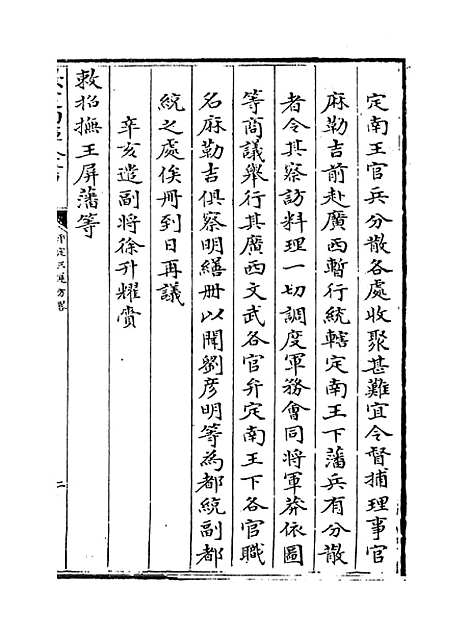 定南王官兵分散各處收聚甚難宜令督捕理事官
麻勒吉前赴廣西暫行統轄定南王下藩兵有分散
者令其察訪料理一切調度軍務會同將軍莽依圖
等商議舉行其廣西文武各官弁定南王下各官職
名麻勒吉俱察明繕冊以聞劉彦明等為都統副都
統之處俟冊到日再議
辛亥遣副將徐升耀賫
敕招撫王屏藩等
平定三逆方畧
二